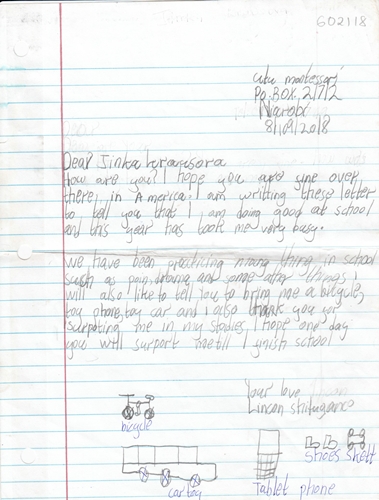 602118
montessori
P.O. BOX. 2172
Nairobi
8/09/2018
Dear
How are you? I hope you are yine over
there in America. I am writting these letter
to tell you that I am doing good at school
and this year has took me very busy.
we have been practicing thing in school
such as poin, drama and some other things i
will also like to tell you to bring me a bicycle,
toy phone, toy car and i also thank you yor
surpoting me in my studies i hope one day
you will surport me till I yinish school
Your love
Lincon
bicycle
car toy
Tablet phone
shoes